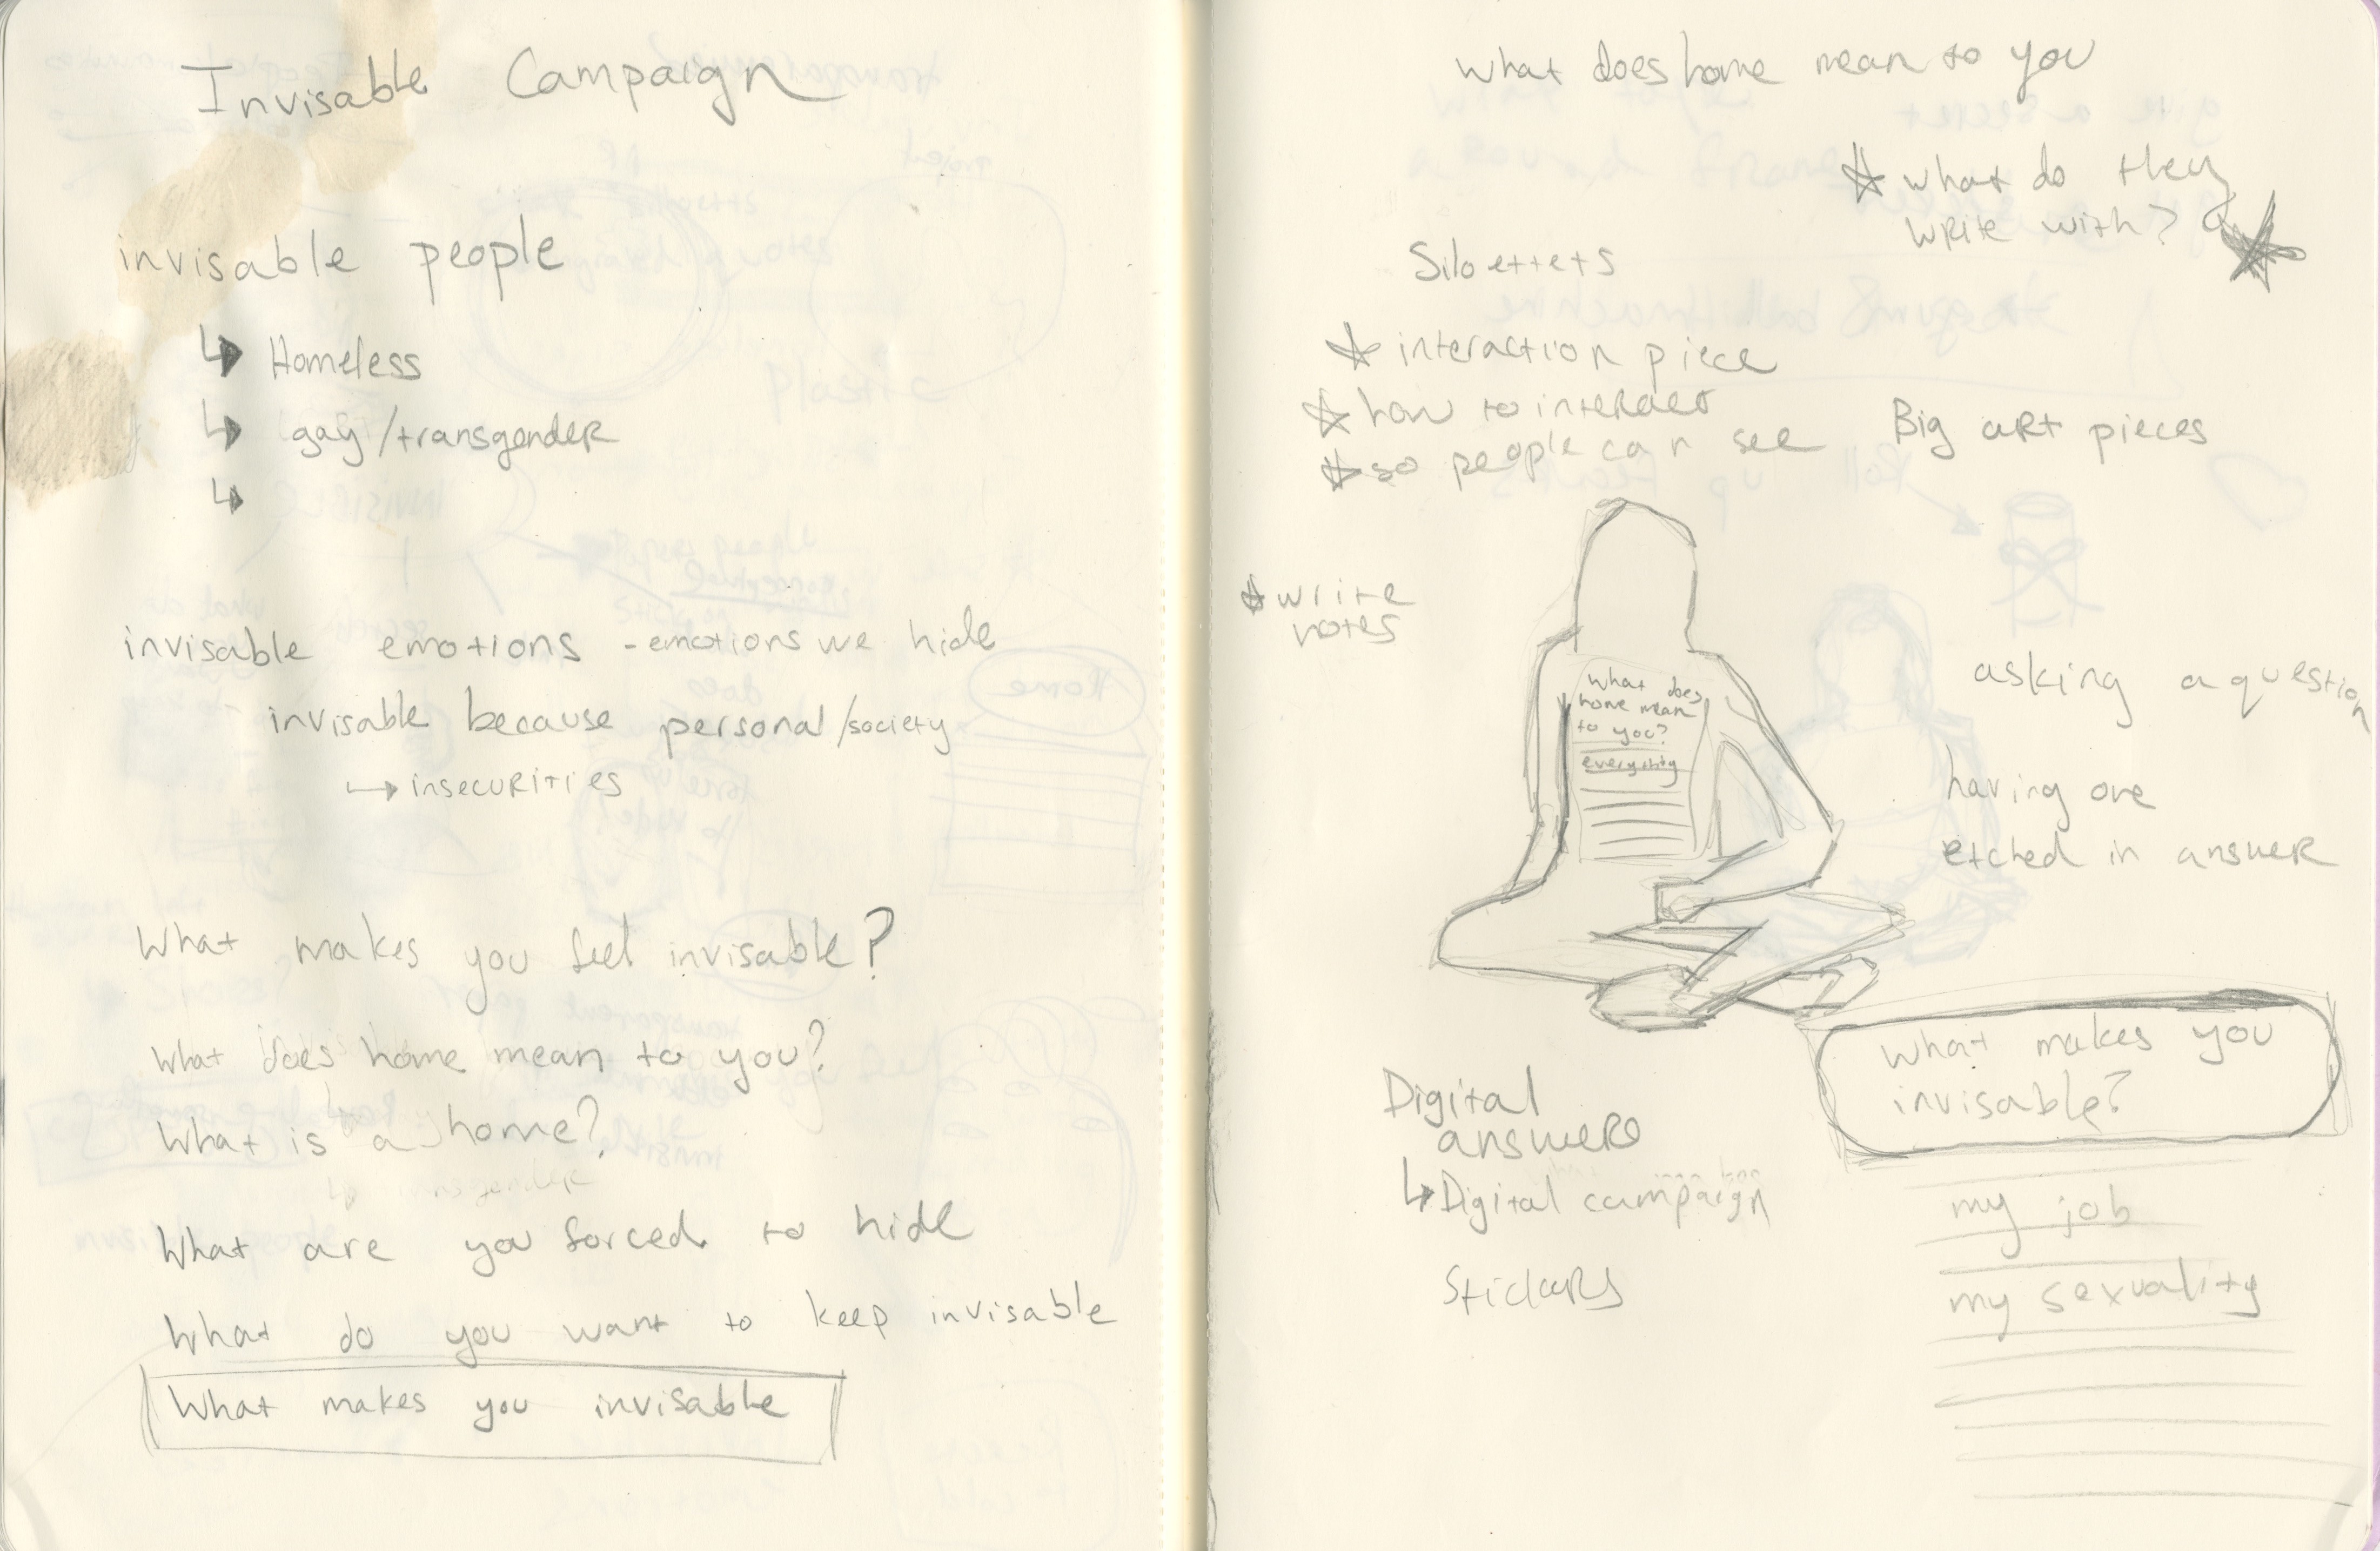 Invisable Campaign
invisable people
↳ Homeless
↳ gay/transgender
↳
invisable emotions - emotions we hide
invisable because personal/society
→ insecurities
What makes you feel invisable?
What does home mean to you?
What is a home?
What are you forced to hide
What do you want to keep invisable
What makes you invisable
What does home mean to you
☆ what do they
write with?
Siloettets
☆ interaction piece
☆ how to interact
☆ so people can see
Big art pieces
☆ write
notes
What does
home mean
to you?
everything
asking a question
having one
etched in answer
Digital
answers
↳ Digital campaign
Stickers
What makes you
invisable?
my job
my sexuality